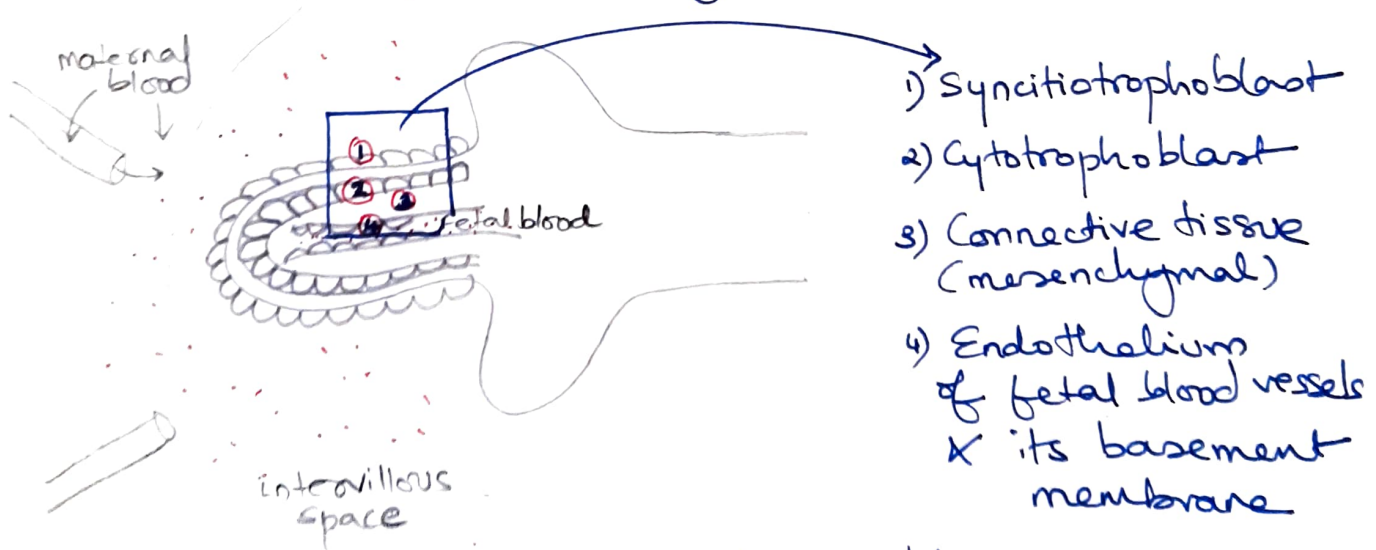 maternal
blood
1
2
3
4
fetal blood
intervillous
space
1) Syncitiotrophoblast
2) Cytotrophoblast
3) Connective tissue
(mesenchymal)
4) Endothelium
of fetal blood vessels
& its basement
membrane